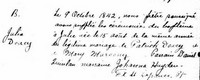 B.
Julia
Deacy
Le 9 Octobre 1842, nous prêtre soussigné
avons suppléé les cérémonies du baptême
à Julie née 15 août de la même année
du légitime mariage de Patrick Deacy et
de Mary
Parrain Daniel
marraine Johanna Hughes